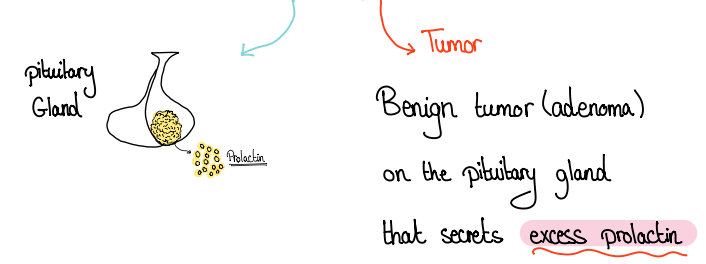 Tumor
pituitary
Gland
Prolactin
Benign tumor (adenoma)
on the pituitary gland
that secrets excess prolactin